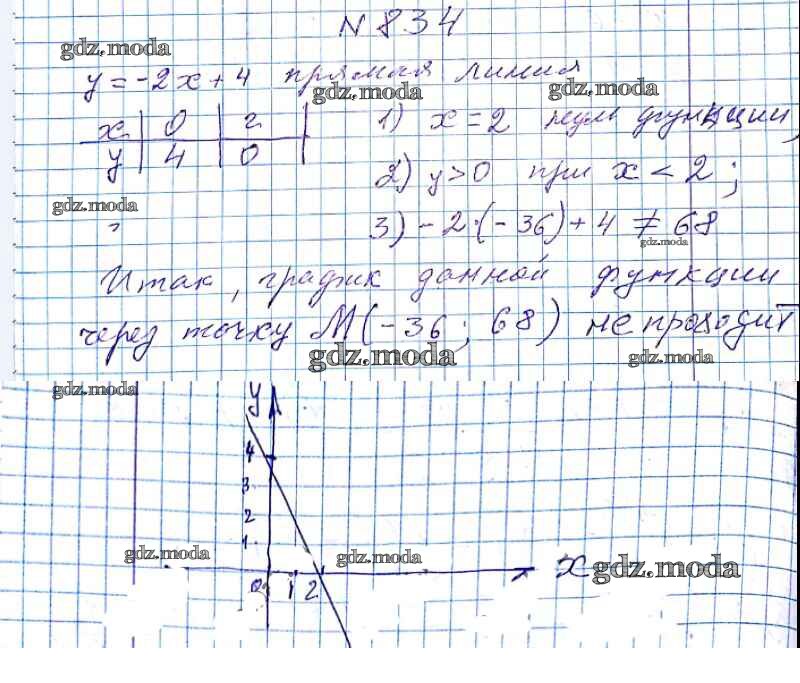 N 834
gdz.moda
y = -2x + 4 прямая линия
gdz.moda gdz.moda
x 0 2
y 4 0
1) x = 2 нуль функции,
2) y > 0 при x < 2;
gdz.moda
3) -2·(-36) + 4 ≠ 68
gdz.moda
Итак, график данной функции
через точку M(-36; 68) не проходит
gdz.moda gdz.moda
gdz.moda
y
4
3
2
1
gdz.moda gdz.moda
x gdz.moda
0 1 2